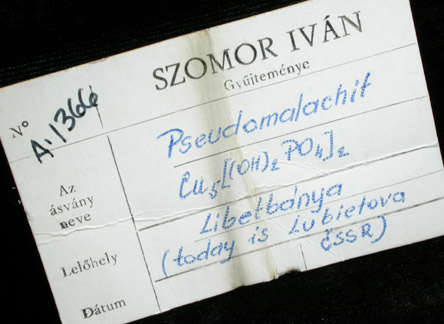 SZOMOR IVÁN
Gyűjteménye
Nº A.1366
Az ásvány neve
Pseudomalachit
Cu₅[(OH)₂PO₄]₂
Lelőhely
Libetbánya
(today is Lubietova
ČSSR)
Dátum